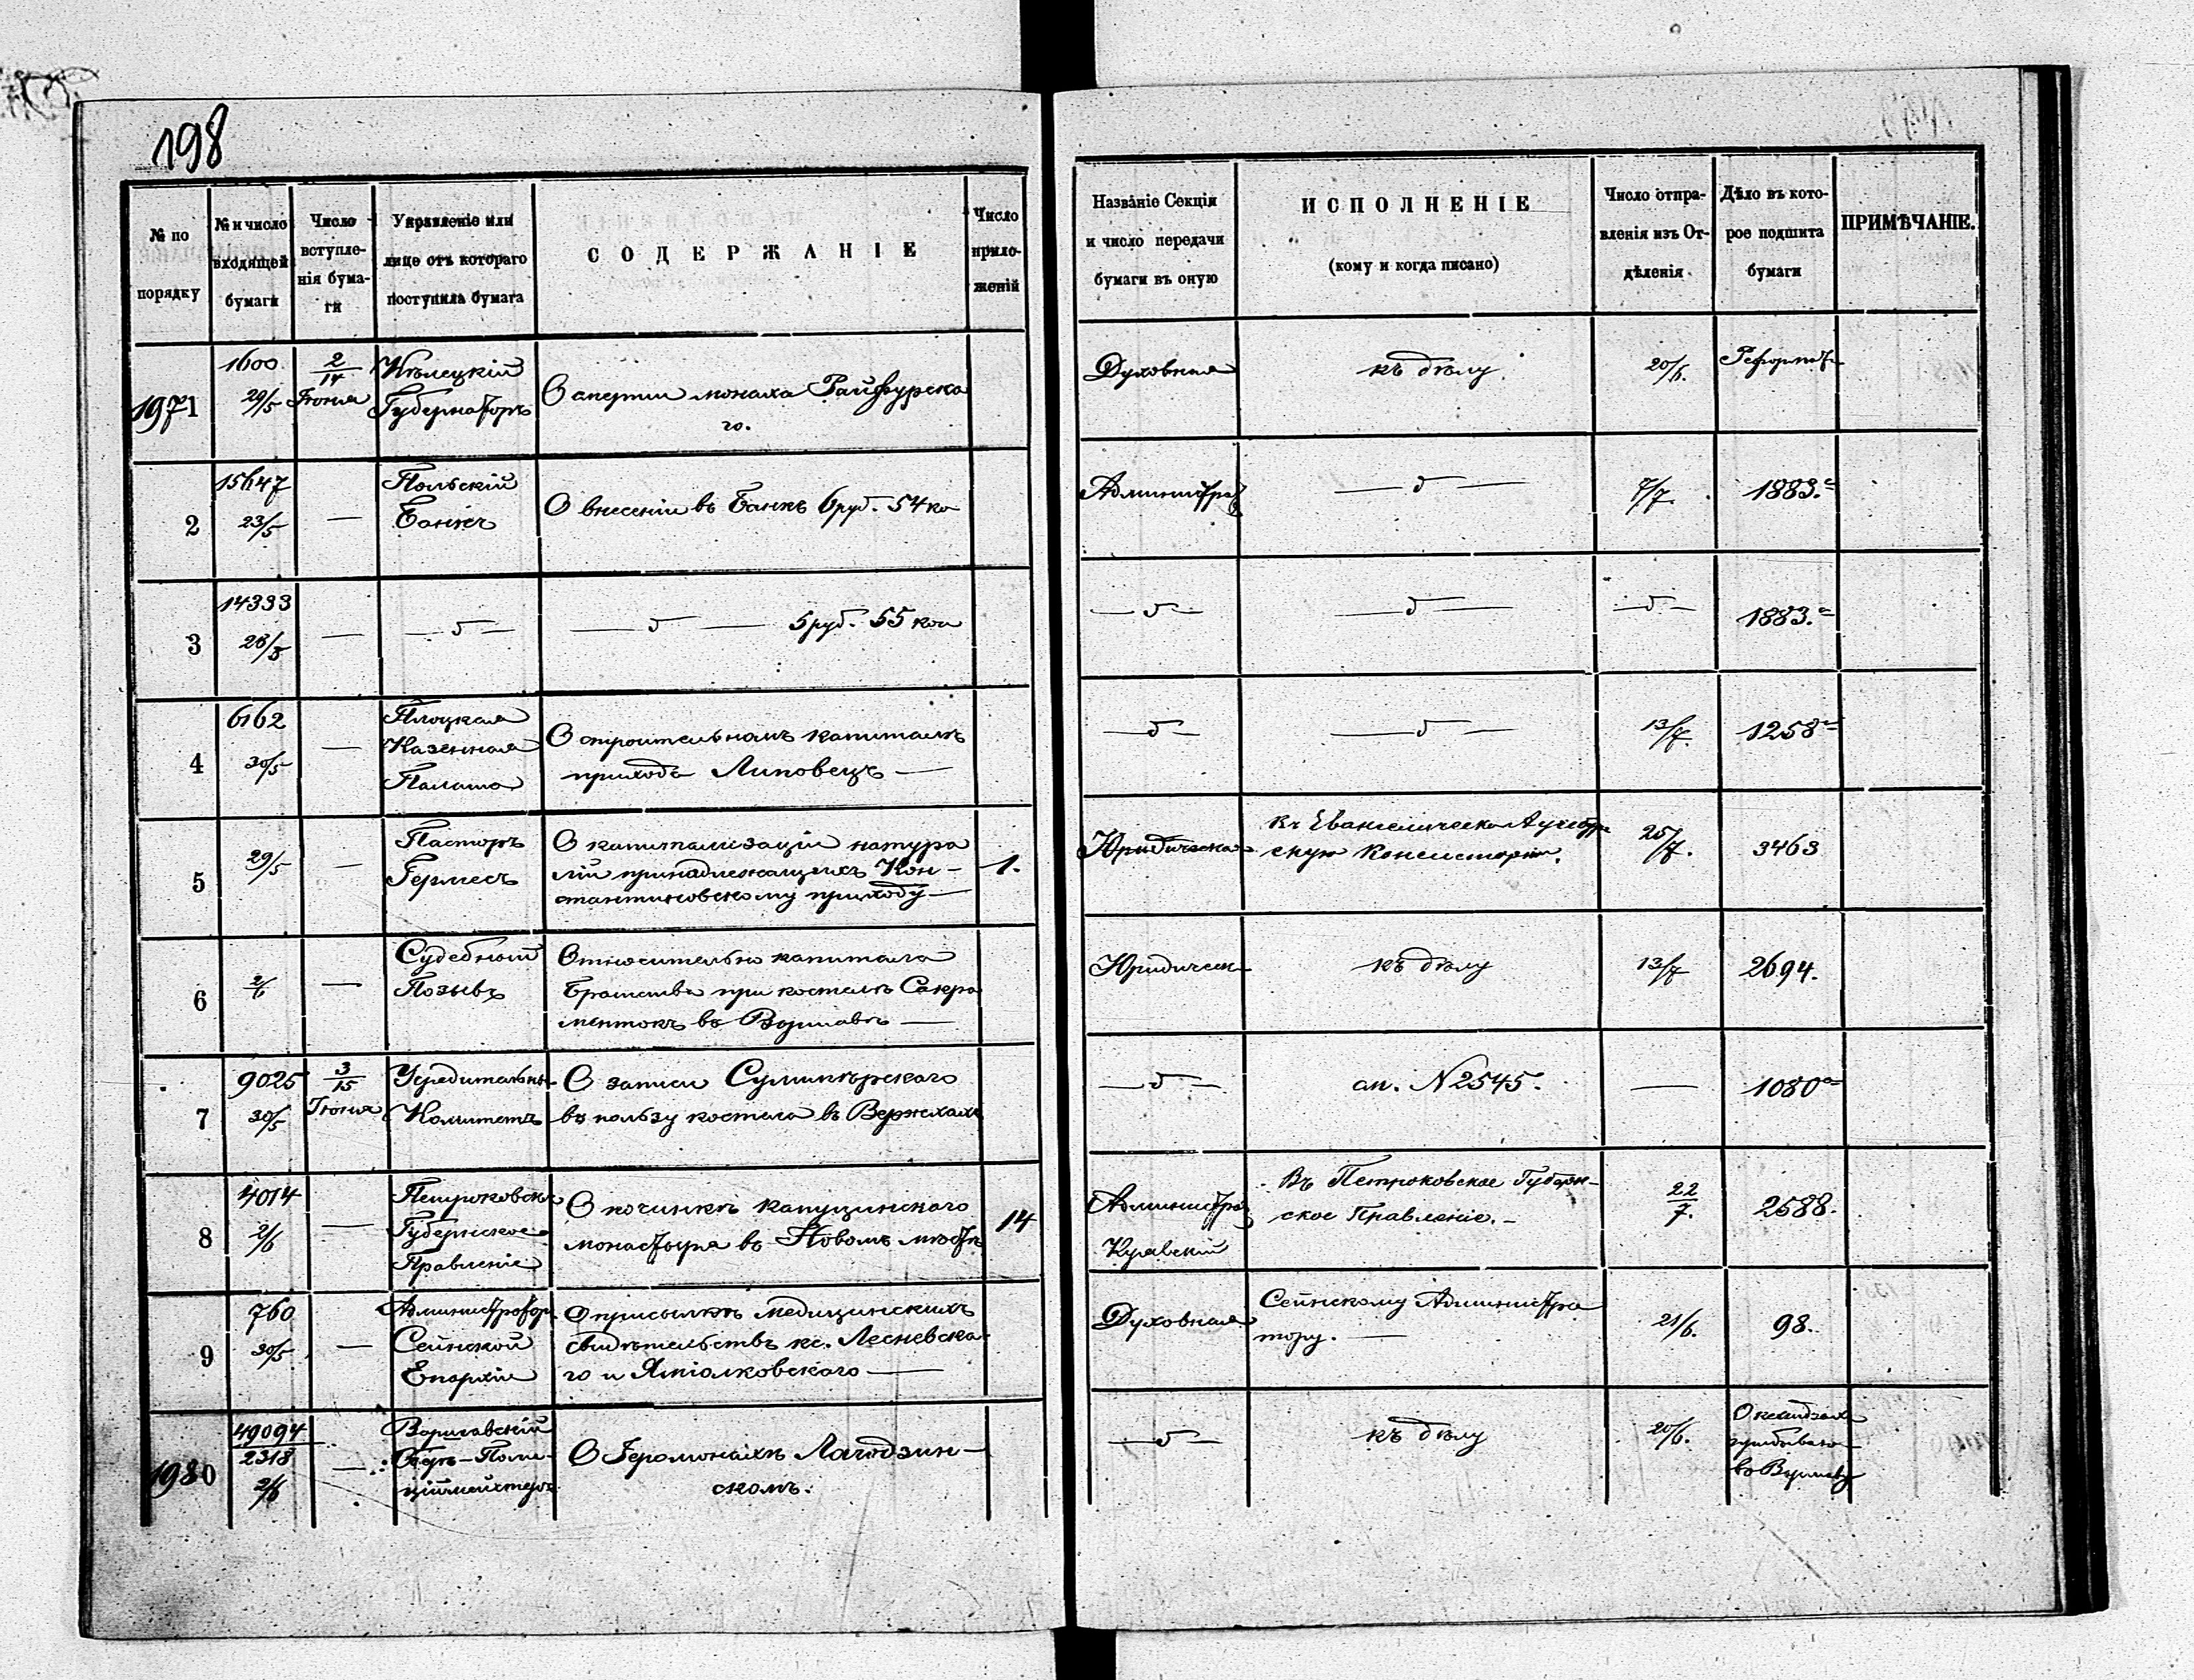 198
№ по порядку
№ и число входящей бумаги
Число вступленія бумаги
Управленіе или лице отъ котораго поступила бумага
СОДЕРЖАНІЕ
Число приложеній
Названіе Секціи и число передачи бумаги въ оную
ИСПОЛНЕНІЕ
(кому и когда писано)
Число отправленія изъ Отдѣленія
Дѣло въ которое подшита бумаги
ПРИМѢЧАНІЕ.
1971
1600
29/5
2/14 Іюня
Кѣлецкій
Губернаторъ
О смерти монаха Райфурска
го.
Духовная
къ дѣлу
20/6.
2
15647
23/5
—
Польскій
Банкъ
О внесеніи въ Банкъ 6 руб. 54 ко
— д —
7/7.
1883.
3
14333
28/5
—
— д —
— д — 5 руб. 55 коп
— д —
— д —
— д —
1883.
4
6162
30/5
—
Плоцкая
Казенная
Палата
О строительномъ капиталѣ
прихода Липовецъ —
— д —
— д —
13/7.
1258
5
29/5
—
Пасторъ
Гермесъ
О капитализаціи натура
лій принадлежащихъ Кон-
стантиновскому приходу —
1.
Юридическа
къ Евангелическо Аугсбур
скую Консисторію.
25/7.
3463
6
2/6
—
Судебный
Позывъ
Относительно капитала
Братства при костелѣ Сакра
ментокъ въ Варшавѣ —
Юридическ
къ дѣлу
13/7
2694.
7
9025
30/5
3/15 Іюня
Комитетъ
О записи
въ пользу костела въ
— д —
см. N 2545.
—
1080
8
4014
2/6
—
Петроковск
Губернское
Правленіе
О починкѣ капуцинскаго
монастыря въ Новомъ мѣстѣ
14
Администра
Въ Петроковское Губерн-
ское Правленіе. —
22/7.
2588.
9
760
30/5
—
Администраторъ
Сейнской
Епархіи
О присылкѣ медицинскихъ
свидѣтельствъ кс. Лесневска-
го и Ямiолковскаго —
Духовная
Сейнскому Администра
тору. —
21/6.
98.
1980
49094
2318
2/6
—
Варшавскій
Оберъ-Поли-
ціймейстеръ
О Іеромонахѣ Лагодзин-
скомъ.
— д —
къ дѣлу
20/6.
О ксендзахъ
въ Варшаву